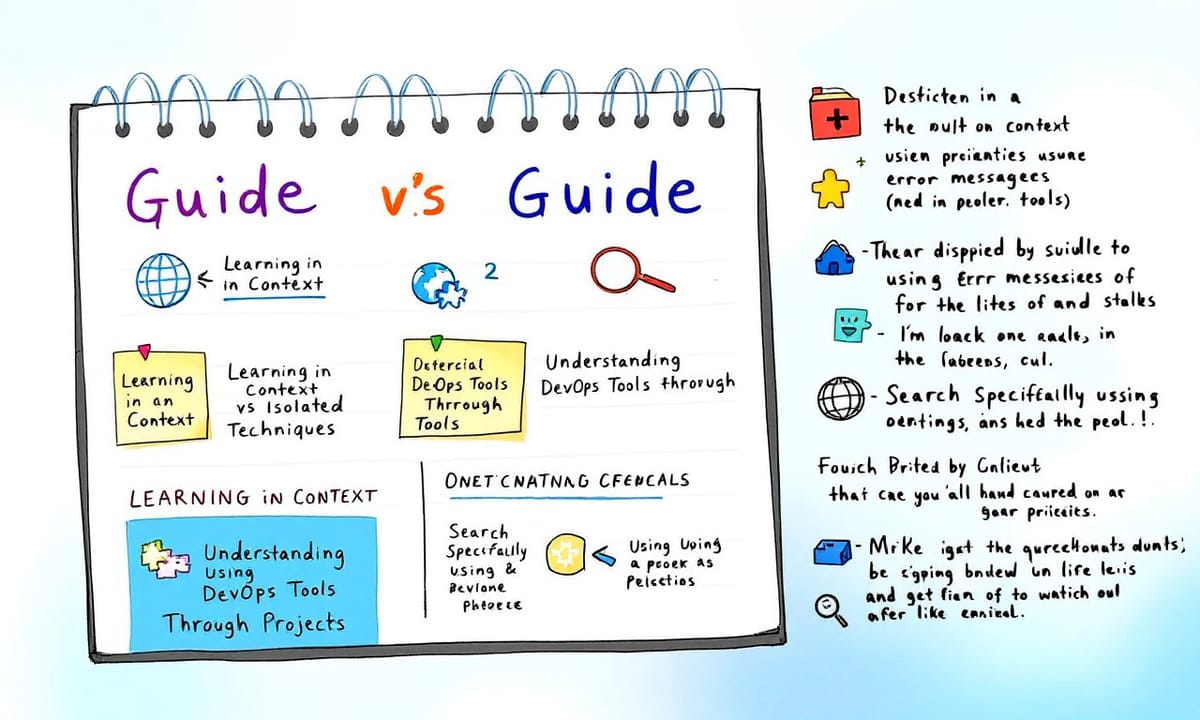 Guide v's Guide
Learning in
in Context
2
Learning
in an
Context
Learning in
Context
vs Isolated
Techniques
Detercial
DeOps Tools
Thrrough
Tools
Understanding
DevOps Tools throrough
LEARNING iN CONTEXT
Understanding
Using
DevOps Tools
Through Projects
ONET CNATNNG CFENCALS
Search
Specifally
using &
Bevione
Pheece
Using Uoing
a poek as
Pelectios
Desticten in a
the nult on context
usien prcianties usune
error messagees
(ned in peoler. tools)
-Thear disppied by suidle to
using Errr messesices of
for the lites of and stalks
- I'm loack one aadls, in
the fabeens, cul.
- Search Speciffally ussing
oentings, ans hed the peol.!.
Fouich Brited by Cnlieut
that cae you 'all hand caured on ar
goar priicaits.
- MrKe igst the qurecHonats dunts;
be s'gping bndew un life leris
and get fian of to watich oul
afer like ennical.